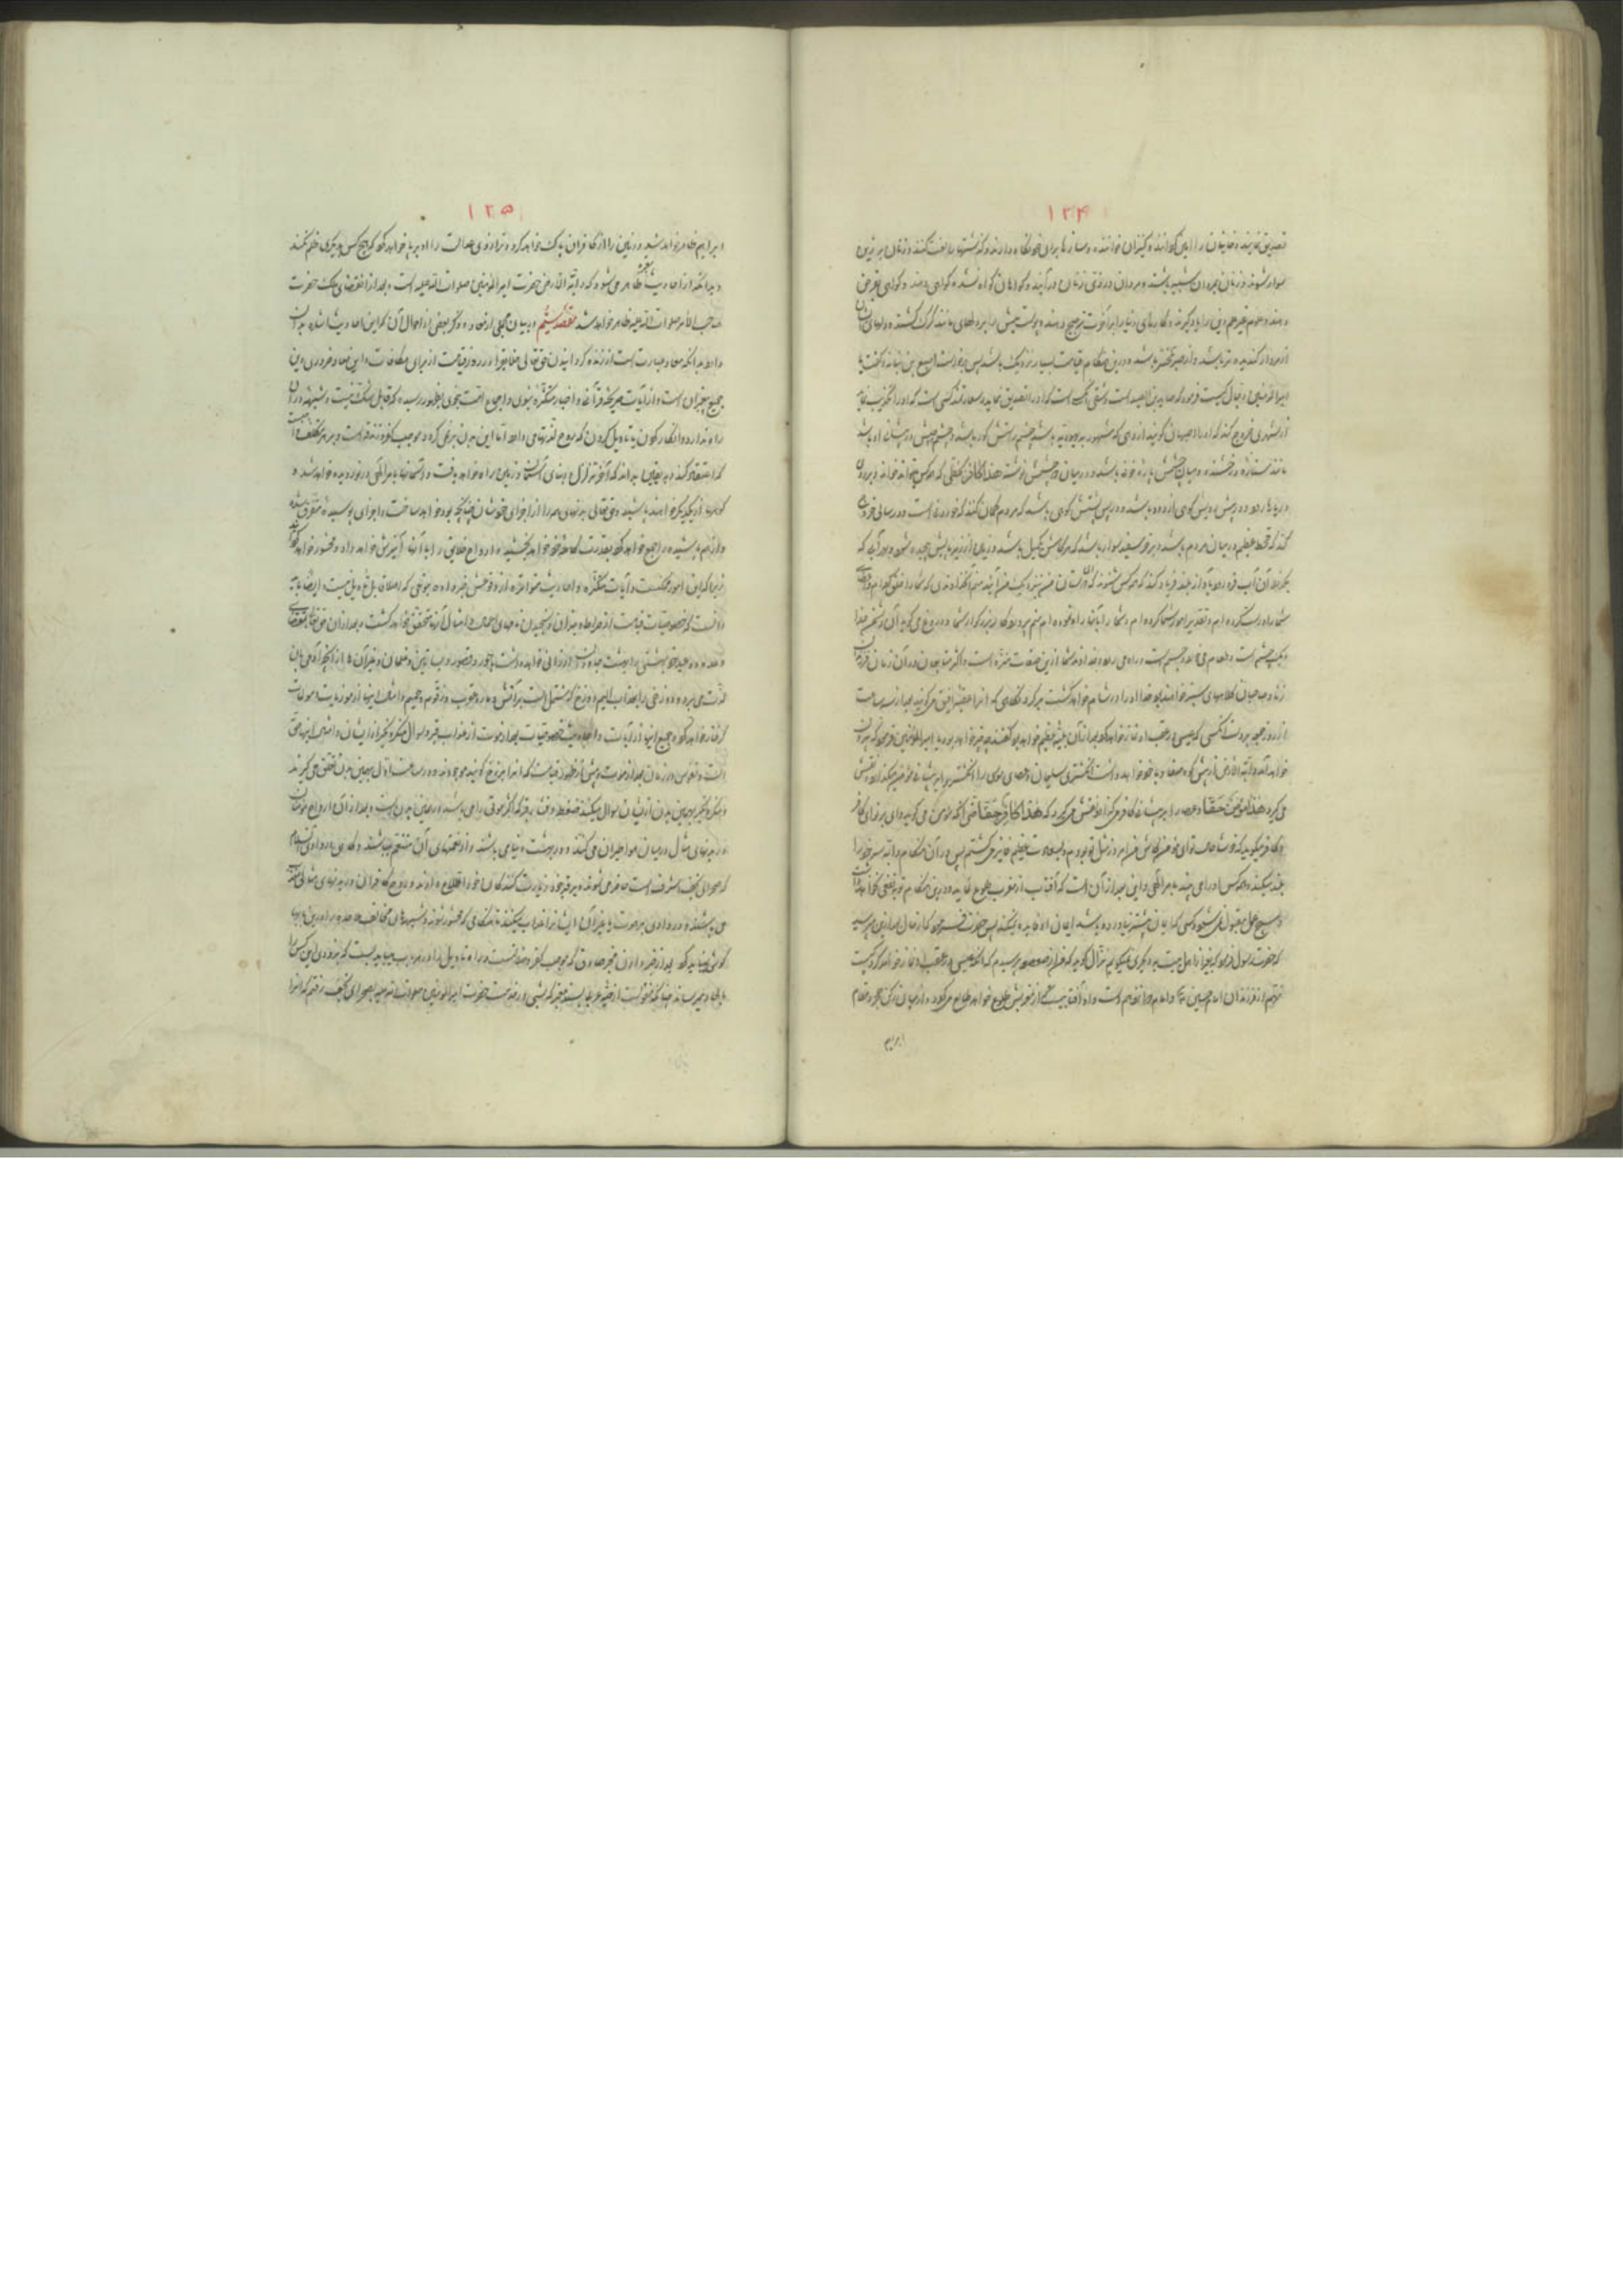 ۱۲۴
تصدیق نمایند و خاینان را امین گردانند و کنیزان خواننده و سازها برای خود نگاه دارند و گذشتها را لعنت کنند و زنان بر زین
سوار شوند و زنان بمردان شبیه باشند و مردان در زی زنان درآیند و گواهان گواه نشده گواهی دهند و گواهی بغرض
دهند و علوم غیر دین را یاد گیرند و کارهای دنیا را بر آخرت ترجیح دهند و پوست میش را بر دلهای مانند گرک کشند و دلهای ایشان
از مردار گندیده‌تر باشد و از صبر تلختر باشد و درین هنگام قیامت بسیار نزدیک باشد پس برخواست اصبغ بن نباته و گفت یا
امیر المؤمنین دجال کیست فرمود که صاید بن الصید است و شقی کسی است که او را تصدیق نماید و سعادتمند کسی است که او را تکذیب نماید
از شهری خروج کند که او را اصبهان گویند از دهی که مشهور به یهودیه باشد چشم راستش کور باشد و چشم چپش در پیشانی او باشد
مانند ستاره درخشنده و میان چشمش پاره خونه باشد و در میان دو چشمش نوشته هذا کافر بخطی که هر کس تواند خواند و بر روی
دریاها رود و در پیش رویش کوهی از دود باشد و در پس پشتش کوهی باشد که مردم گمان کنند که خوردنی است و در سالی خروج
کند که قحط عظیم در میان مردم باشد و بر خر سفید سوار باشد که هر گامش یک میل باشد و زمین از زیر پایش پیچیده شود و بهر آبی که
بگذرد آن آب فرو رود و بآواز بلند فریاد کند که هر کس شنود که دوستان من نزد من آیند منم آنخداوندی که شما را خلق کرده‌ام و اعضای
شما را درست کرده‌ام و تقدیر امور شما کرده‌ام و شما را راه نموده‌ام منم پروردگار بزرگوار شما و دروغ می‌گوید آن دشمن خدا
و یک چشم است و طعام می‌خورد و جسم است و راه می‌رود و خداوند شما ازین صفات منزه است و اکثر متابعان او در آن زمان فرزندان
زنا و صاحبان کلاههای سبز خواهند بود خدا او را در شام خواهد کشت بر گردنگاهی که انرا عقبه افیق می‌گویند بعد از سه ساعت
از روز جمعه بر دست آنکسی که عیسی در عقب او نماز خواهد کرد و بعد از آن بلیه عظیم خواهد بود گفتند چه چیز خواهد بود یا امیر المؤمنین فرمود که بیرون
خواهد آمد دابة الارض از پیش کوه صفا و با خود خواهد داشت انگشتری سلیمان و عصای موسی را انگشتر را بر پیشانی مؤمن میگذارد نقش
می‌گیرد هذا مؤمن حقا و عصا را بر پیشانی کافر می‌گذارد نقش می‌گیرد که هذا کافر حقا حتی آنکه مؤمن می‌گوید وای بر تو ای کافر
و کافر میگوید که خوشا حال تو ای مؤمن کاش من امروز مثل تو بودم و بسعادت عظیم فایز می‌گشتم پس در آن هنگام دابه سر خود را
بلند میکند و همه کس او را می‌بیند بامر الهی و این بعد از آن است که آفتاب از مغرب طلوع نماید و درین هنگام توبه نفعی نخواهد داشت
و هیچ عمل مقبول نمی‌شود و کسی که ایمان پیشتر نیاورده باشد ایمان او فایده نمیکند پس حضرت فرمود که از حال بعد ازین مپرسید
که حضرت رسول فرمود که بغیر از اهل بیت به دیگری نگویم نزال گوید که من از صعصعه پرسیدم که آنکه عیسی در عقب او نماز خواهد کرد کیست
نهم از فرزندان امام حسین است و امام دوازدهم است و او آفتابیست که از مغربش طلوع خواهد کرد و از میان رکن حجر و مقام
ابراهیم
۱۲۵
ابراهیم ظاهر خواهد شد و زمین را از کافران پاک خواهد کرد و ترازوی عدالت را او برپا خواهد کرد که هیچ کس بدیگری ظلم نکند
و بدانکه از احادیث معتبره ظاهر می‌شود که دابة الارض حضرت امیر المؤمنین صلوات الله علیه است و بعد از انقضای ملک حضرت
صاحب الامر صلوات الله علیه ظاهر خواهد شد مقصد ششم در بیان مجملی از معاد و ذکر بعضی از احوال آن که این احادیث اشاره بدان
دارد بدانکه معاد عبارت است از زنده گردانیدن حق تعالی خلایق را در روز قیامت از برای مکافات و این معاد ضروری دین
جمیع پیغمبران است و از آیات صریحه قرآنی و اخبار متکثره نبوی و اجماع امت بنحوی بظهور رسیده که قابل شک نیست و شبهه در آن
راه ندارد و انکار کردن یا تاویل کردن که روح لذتها می‌یابد اما این بدن بر نمی‌گردد موجب کفر و زندقه است و بر هر مکلف لازمست
که اعتقاد کند و به یقین بداند که آخر تزلزل به بنای آسمان و زمین راه خواهد یافت و آسمانها بامر الهی در نوردیده خواهد شد و
کوهها از یکدیگر خواهند پاشید و حق تعالی بدنهای مردم را از اجزای خودشان چنانچه بود خواهد ساخت و اجزای پوسیده متفرق شده
و از هم پاشیده را جمع خواهد کرد بقدرت کامله خود خواهد بخشید و ارواح خلایق را با آنها آمیزش خواهد داد و محشور خواهد کرد
زیرا که این امور ممکنست و آیات متکثره و احادیث متواتره از وقوعش خبر داده بنوعی که اصلا قابل تاویل نیست و ایضا باید
دانست که خصوصیات قیامت از صراط و میزان و سنجیدن نامهای اعمال و امثال آن متحقق خواهد گشت و بعد از آن حق تعالی بمقتضای
وعده و وعید خود بهشتی را بهشت جاودان ارزانی خواهد داشت با حور و قصور و بساتین و غلمان و غیر آن از آنچه آدمی بان
لذت می‌برد و دوزخی را بعذاب الیم دوزخ که مشتمل است بر آتش و مار و عقرب و زقوم و حمیم و امثال اینها از موذیات و مولمات
گرفتار خواهد کرد و جمیع اینها از آیات و احادیث خصوصیات بعد از موت از عذاب قبر و سوال منکر و نکیر و زایشان و امثال اینها حق
است و نفوس در زمان بعد از موت و پیش از ظهور قیامت که انرا برزخ گویند موجودند و در ساعت اول بهمین بدن تعلق می‌گیرند
و منکر و نکیر بهمین بدن از ایشان سوال میکنند و ضغطه و فشار قبر که اکثر مردم را می‌باشد در همین بدن است و بعد از آن ارواح مؤمنان
در بدنهای مثال در میان هوا طیران می‌کنند و در بهشت دنیا می‌باشند و از نعمتهای آن متنعم میباشند و گاهی به وادی السلام
که صحرای نجف اشرف است حاضر می‌شوند و بر قبر خود و زیارت کنندگان خود اطلاع دارند و روح کافران در بدنهای مثالی معذب
می‌باشند و در وادی برهوت یا غیر آن ایشانرا عذاب میکنند تا هنگامی که محشور شوند و شبهه‌های مخالف ملاحده را در این بابها
گوش نباید کرد بعد از خبر دادن مخبر صادق که موجب کفر و ضلالتست و راه تاویل را در هر باب نباید بست که بزودی این کس را
بالحاد میرساند چنانکه منقولست از حبه عرنی بسند معتبر که شبی در خدمت حضرت امیر المؤمنین صلوات الله علیه بصحرای نجف رفتم که انرا